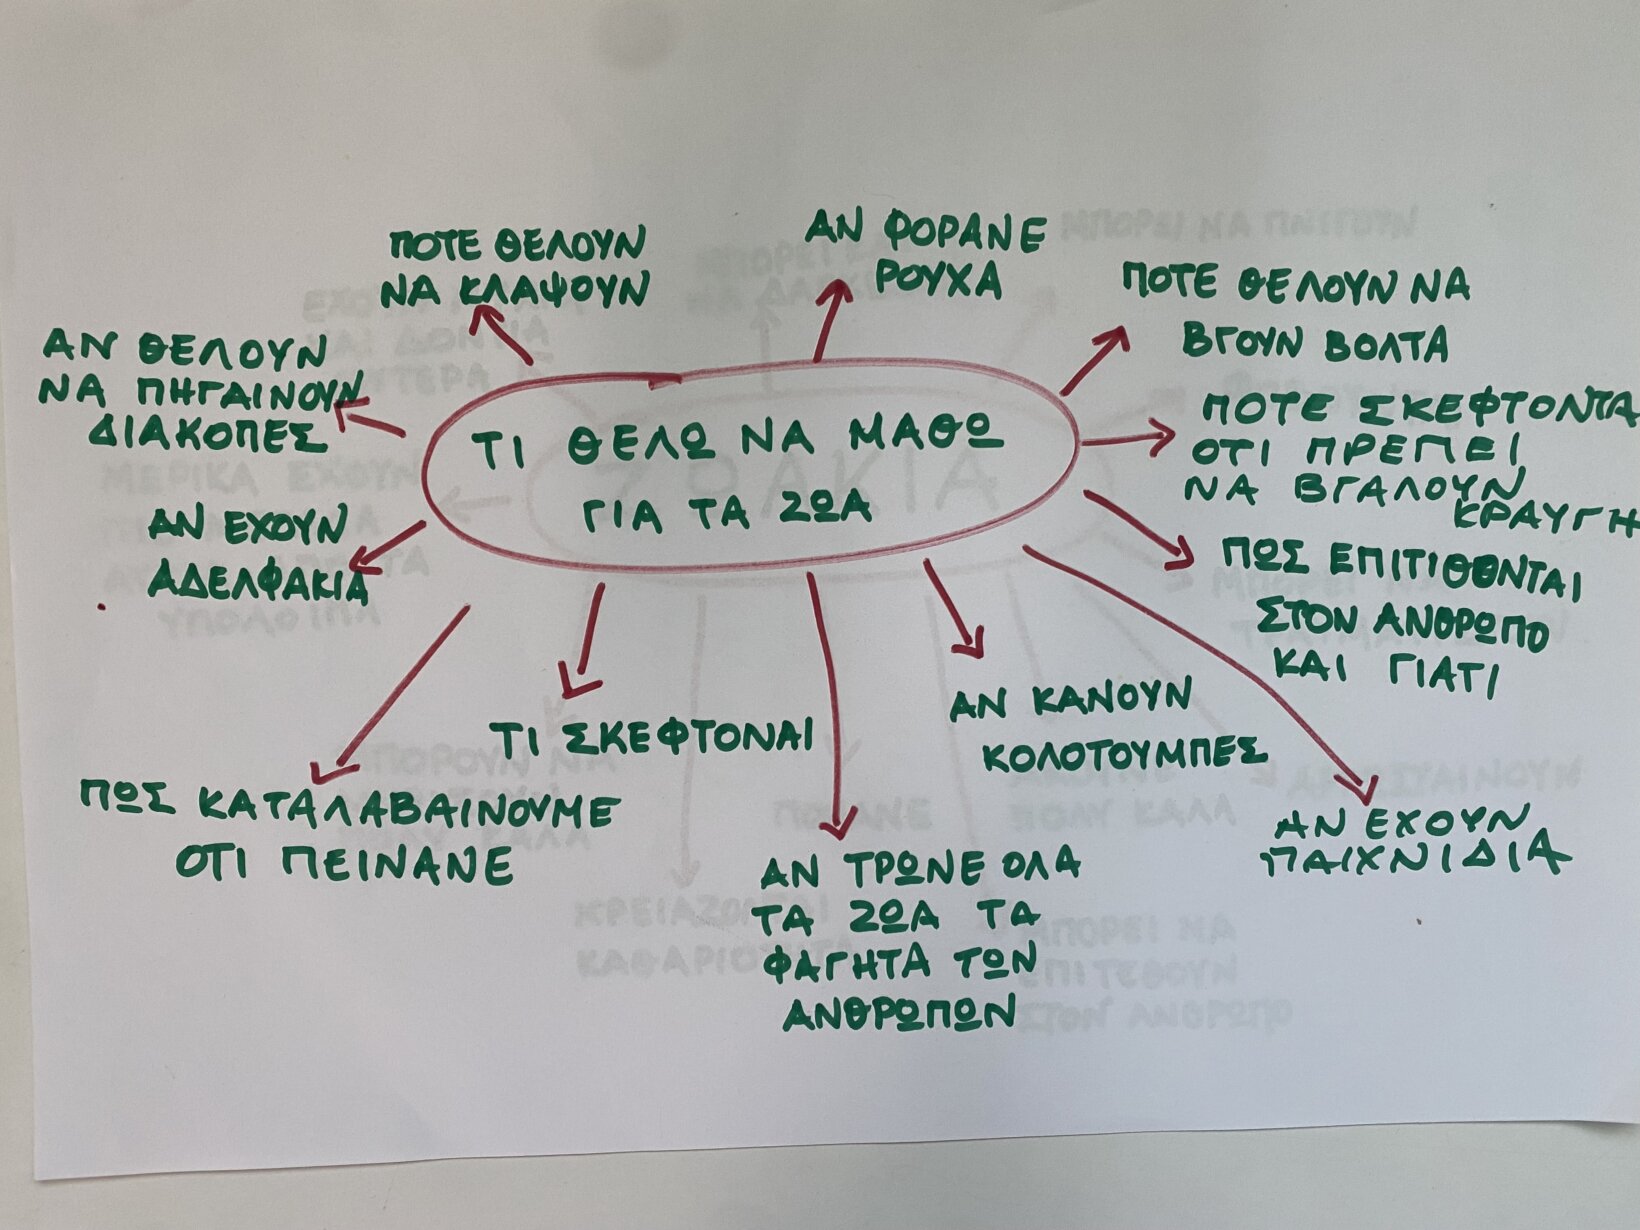 ΤΙ ΘΕΛΩ ΝΑ ΜΑΘΩ
ΓΙΑ ΤΑ ΖΩΑ
ΠΟΤΕ ΘΕΛΟΥΝ
ΝΑ ΚΛΑΨΟΥΝ
ΑΝ ΦΟΡΑΝΕ
ΡΟΥΧΑ
ΠΟΤΕ ΘΕΛΟΥΝ ΝΑ
ΒΓΟΥΝ ΒΟΛΤΑ
ΠΟΤΕ ΣΚΕΦΤΟΝΤΑ
ΟΤΙ ΠΡΕΠΕΙ
ΝΑ ΒΓΑΛΟΥΝ
ΚΡΑΥΓΗ
ΠΩΣ ΕΠΙΤΙΘΟΝΤΑΙ
ΣΤΟΝ ΑΝΘΡΩΠΟ
ΚΑΙ ΓΙΑΤΙ
ΑΝ ΕΧΟΥΝ
ΠΑΙΧΝΙΔΙΑ
ΑΝ ΚΑΝΟΥΝ
ΚΟΛΟΤΟΥΜΠΕΣ
ΑΝ ΤΡΩΝΕ ΟΛΑ
ΤΑ ΖΩΑ ΤΑ
ΦΑΓΗΤΑ ΤΩΝ
ΑΝΘΡΩΠΩΝ
ΤΙ ΣΚΕΦΤΟΝΑΙ
ΠΩΣ ΚΑΤΑΛΑΒΑΙΝΟΥΜΕ
ΟΤΙ ΠΕΙΝΑΝΕ
ΑΝ ΕΧΟΥΝ
ΑΔΕΛΦΑΚΙΑ
ΑΝ ΘΕΛΟΥΝ
ΝΑ ΠΗΓΑΙΝΟΥΝ
ΔΙΑΚΟΠΕΣ